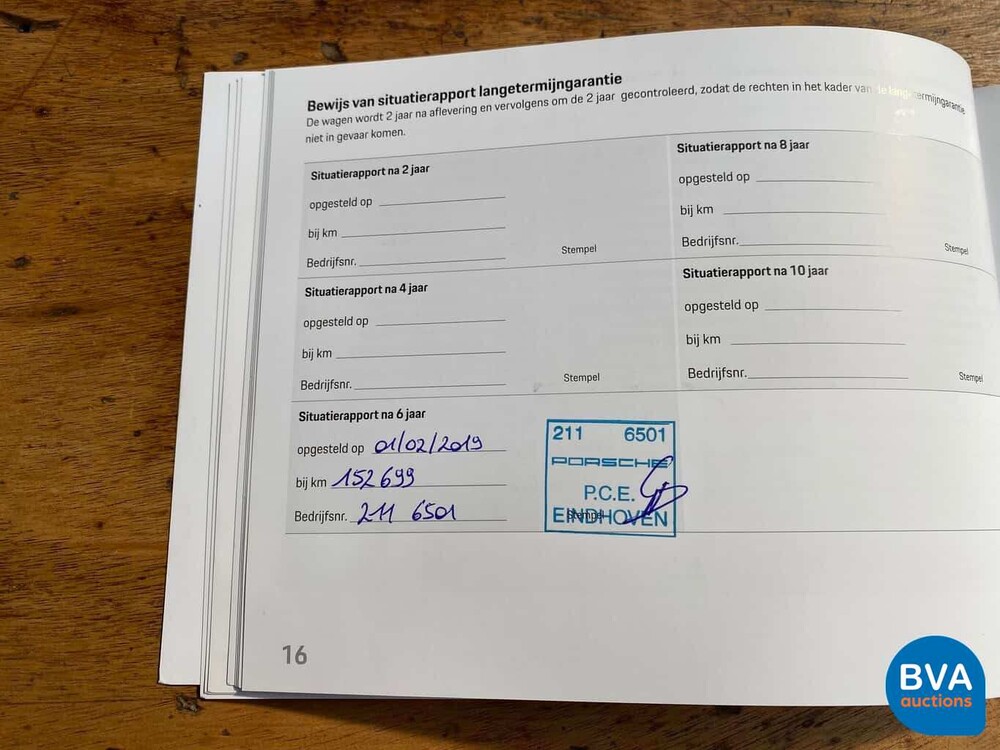 Bewijs van situatierapport langetermijngarantie
De wagen wordt 2 jaar na aflevering en vervolgens om de 2 jaar gecontroleerd, zodat de rechten in het kader van de langetermijngarantie
niet in gevaar komen.
Situatierapport na 2 jaar
opgesteld op
bij km
Bedrijfsnr.
Stempel
Situatierapport na 4 jaar
opgesteld op
bij km
Bedrijfsnr.
Stempel
Situatierapport na 6 jaar
opgesteld op 01/02/2019
bij km 152 699
Bedrijfsnr. 211 6501
Stempel
211 6501
PORSCHE
P.C.E.
EINDHOVEN
Situatierapport na 8 jaar
opgesteld op
bij km
Bedrijfsnr.
Stempel
Situatierapport na 10 jaar
opgesteld op
bij km
Bedrijfsnr.
Stempel
16
BVA
auctions